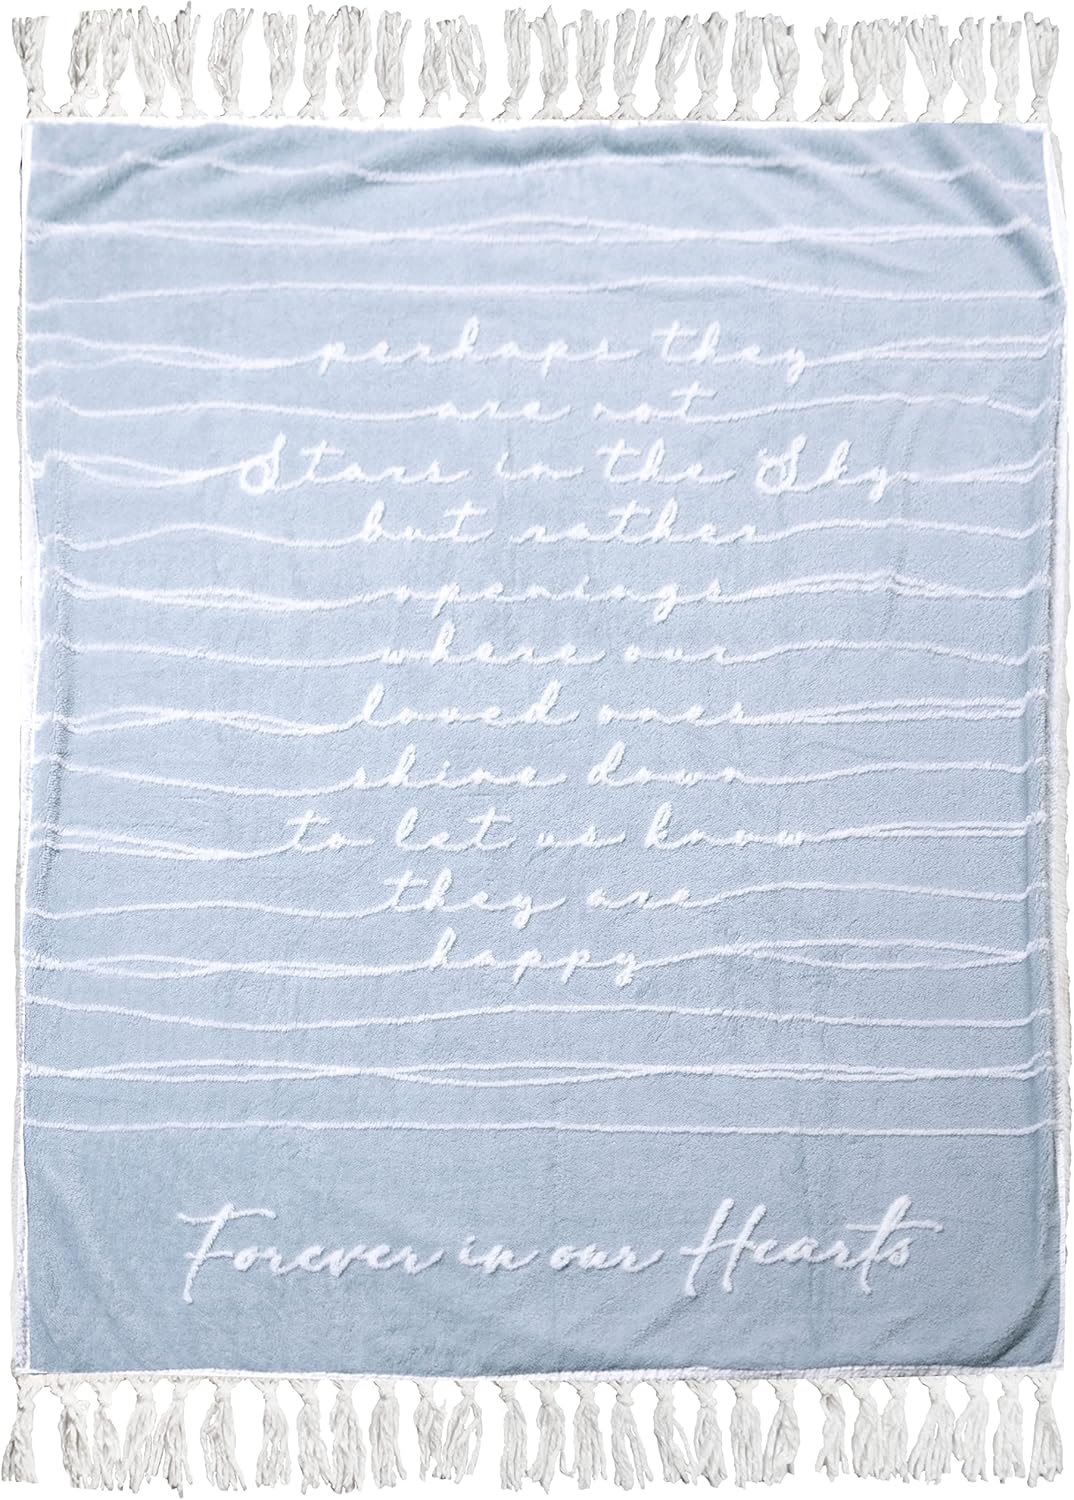 perhaps they
are not
Stars in the Sky
but rather
openings
where our
loved ones
shine down
to let us know
they are
happy
Forever in our Hearts